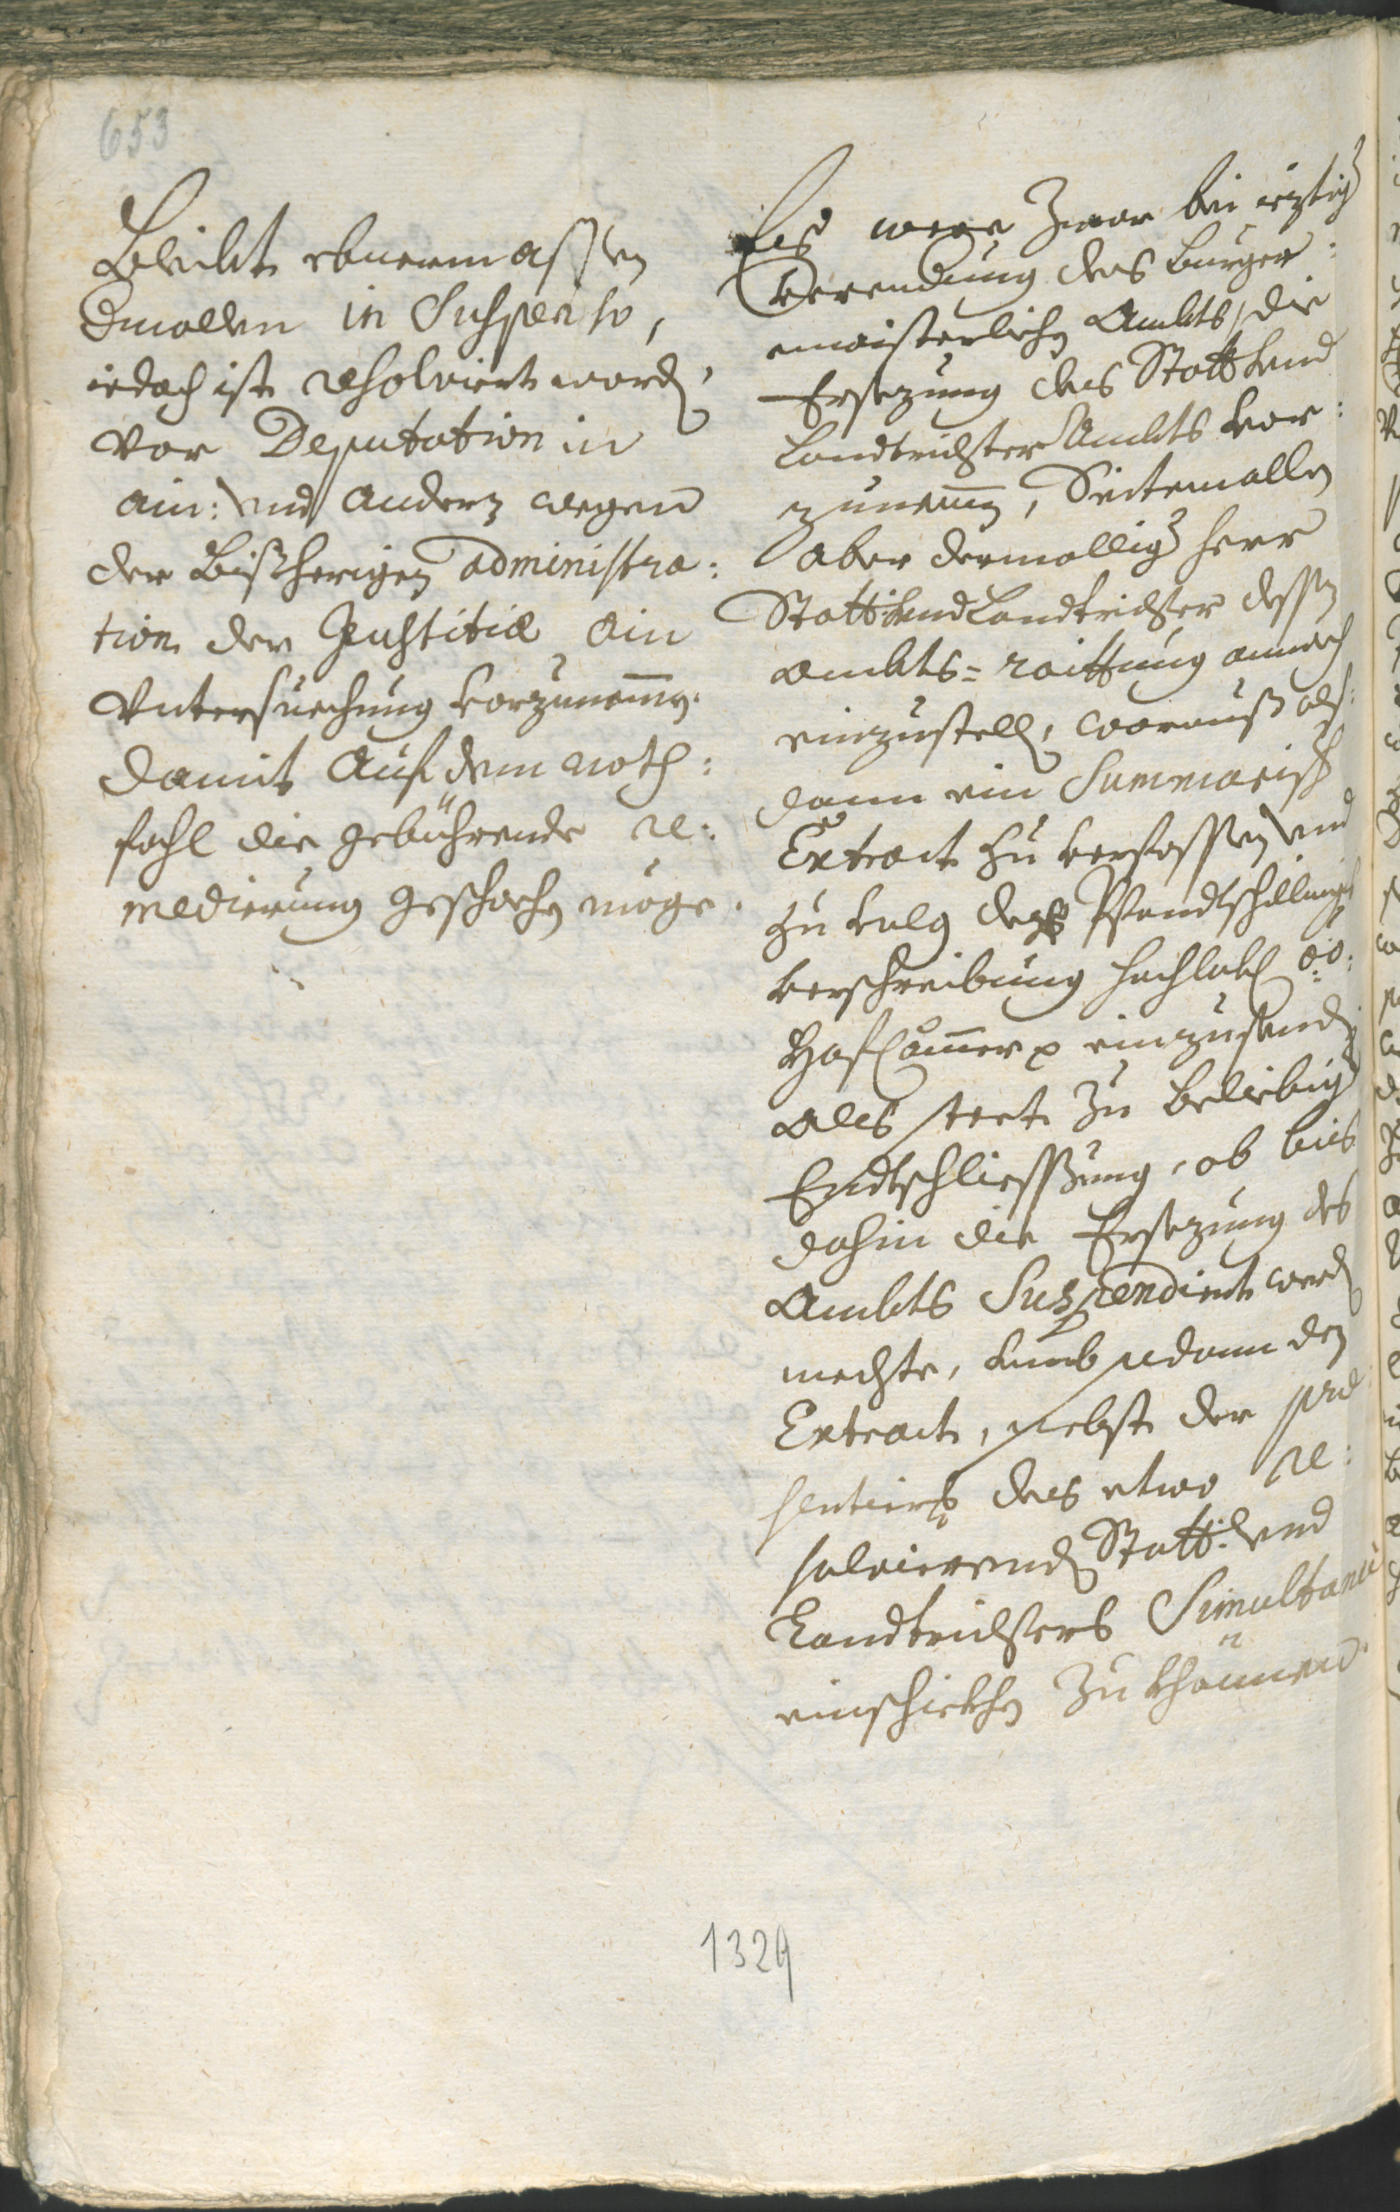 653
Bleibt ebnermassen
Dmallen in Suspenso,
iedoch ist resolviert worden,
vor Deputation in
ain: vnd andern wegen
der bißherigen administra:
tion der Justitiæ ain
Vntersuechung vorzunemmen.
damit auf dem noth:
fahl die gebührende re:
medierung geschechen möge.
Es were zwar bei ieztiger
Verendung des burger:
maisterlichen Ambts, die
Ersezung des Statt vnd
Landtrichter Ambts vor:
zunemmen, Seitemallen
aber dermalliger Herr
Statt: vnd Landtrichter dessen
Ambts=raittung annoch
einzustellen, worauß als:
dann ein Summarisch
Extract zu verfassen vnd
zu volg des Pfandtschillings
verschreibung hochlobl: o:ö:
HofCammer einzusenden
Als steet zu beliebiger
Endtschliessung, ob bis
dahin die Ersezung des
Ambts Suspendiert werden
mechte, vmb sodann den
Extract, nebst der præ
sentierung des etwo re:
solvierenden Statt: vnd
Landtrichters Simultanee
einschickhen zu khönnen.
1329